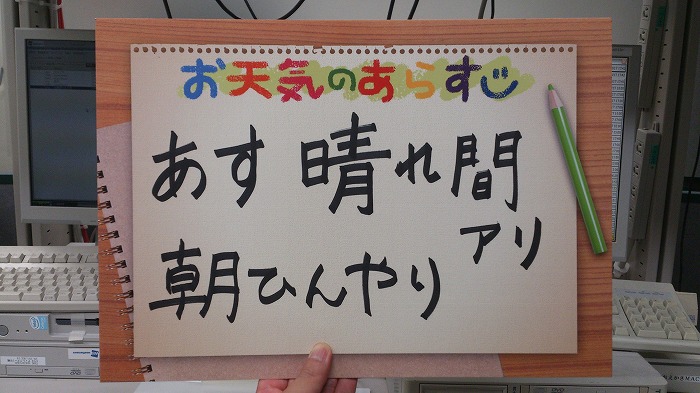 お天気のあらすじ
あす 晴れ間
アリ
朝ひんやり